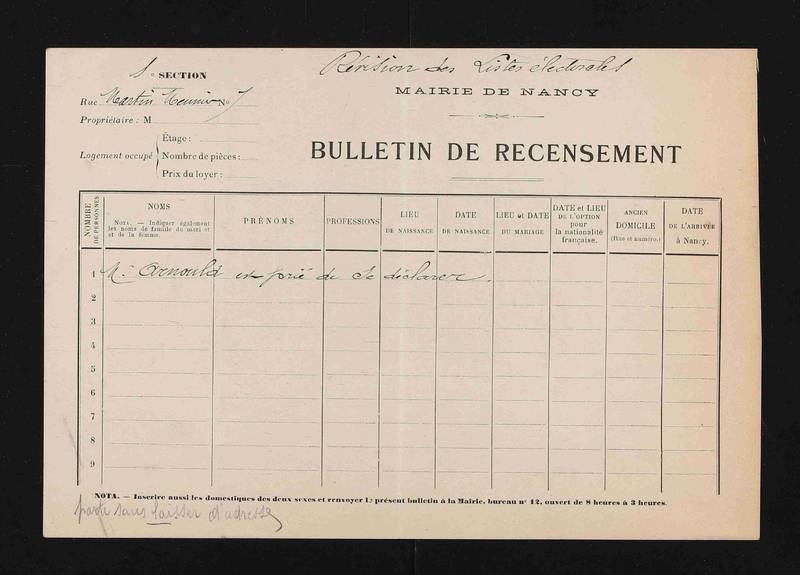 Révision des Listes électorales
1e SECTION
MAIRIE DE NANCY
Rue Martin No 7
Propriétaire : M
BULLETIN DE RECENSEMENT
Logement occupé
Étage :
Nombre de pièces :
Prix du loyer :
NOMBRE DE PERSONNES
NOMS
NOTA. — Indiquer également
les noms de famille du mari et
et de la femme.
PRÉNOMS
PROFESSIONS
LIEU
DE NAISSANCE
DATE
DE NAISSANCE
LIEU et DATE
DU MARIAGE
DATE et LIEU
DE L'OPTION
pour
la nationalité
française.
ANCIEN
DOMICILE
(Rue et numéro.)
DATE
DE L'ARRIVÉE
à Nancy.
1 Mr Arnould est prié de se déclarer.
2
3
4
5
6
7
8
9
NOTA. — Inscrire aussi les domestiques des deux sexes et renvoyer le présent bulletin à la Mairie, bureau no 12, ouvert de 8 heures à 3 heures.
parti sans laisser d'adresse